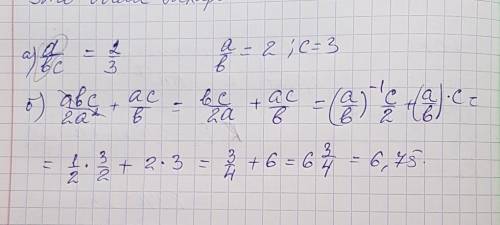 а) a/bc = 2/3 a/b = 2 ; c = 3
б) abc/2a² + ac/b = bc/2a + ac/b = (a/b)⁻¹ c/2 + (a/b) · c =
= 1/2 · 3/2 + 2 · 3 = 3/4 + 6 = 6 3/4 = 6,75.